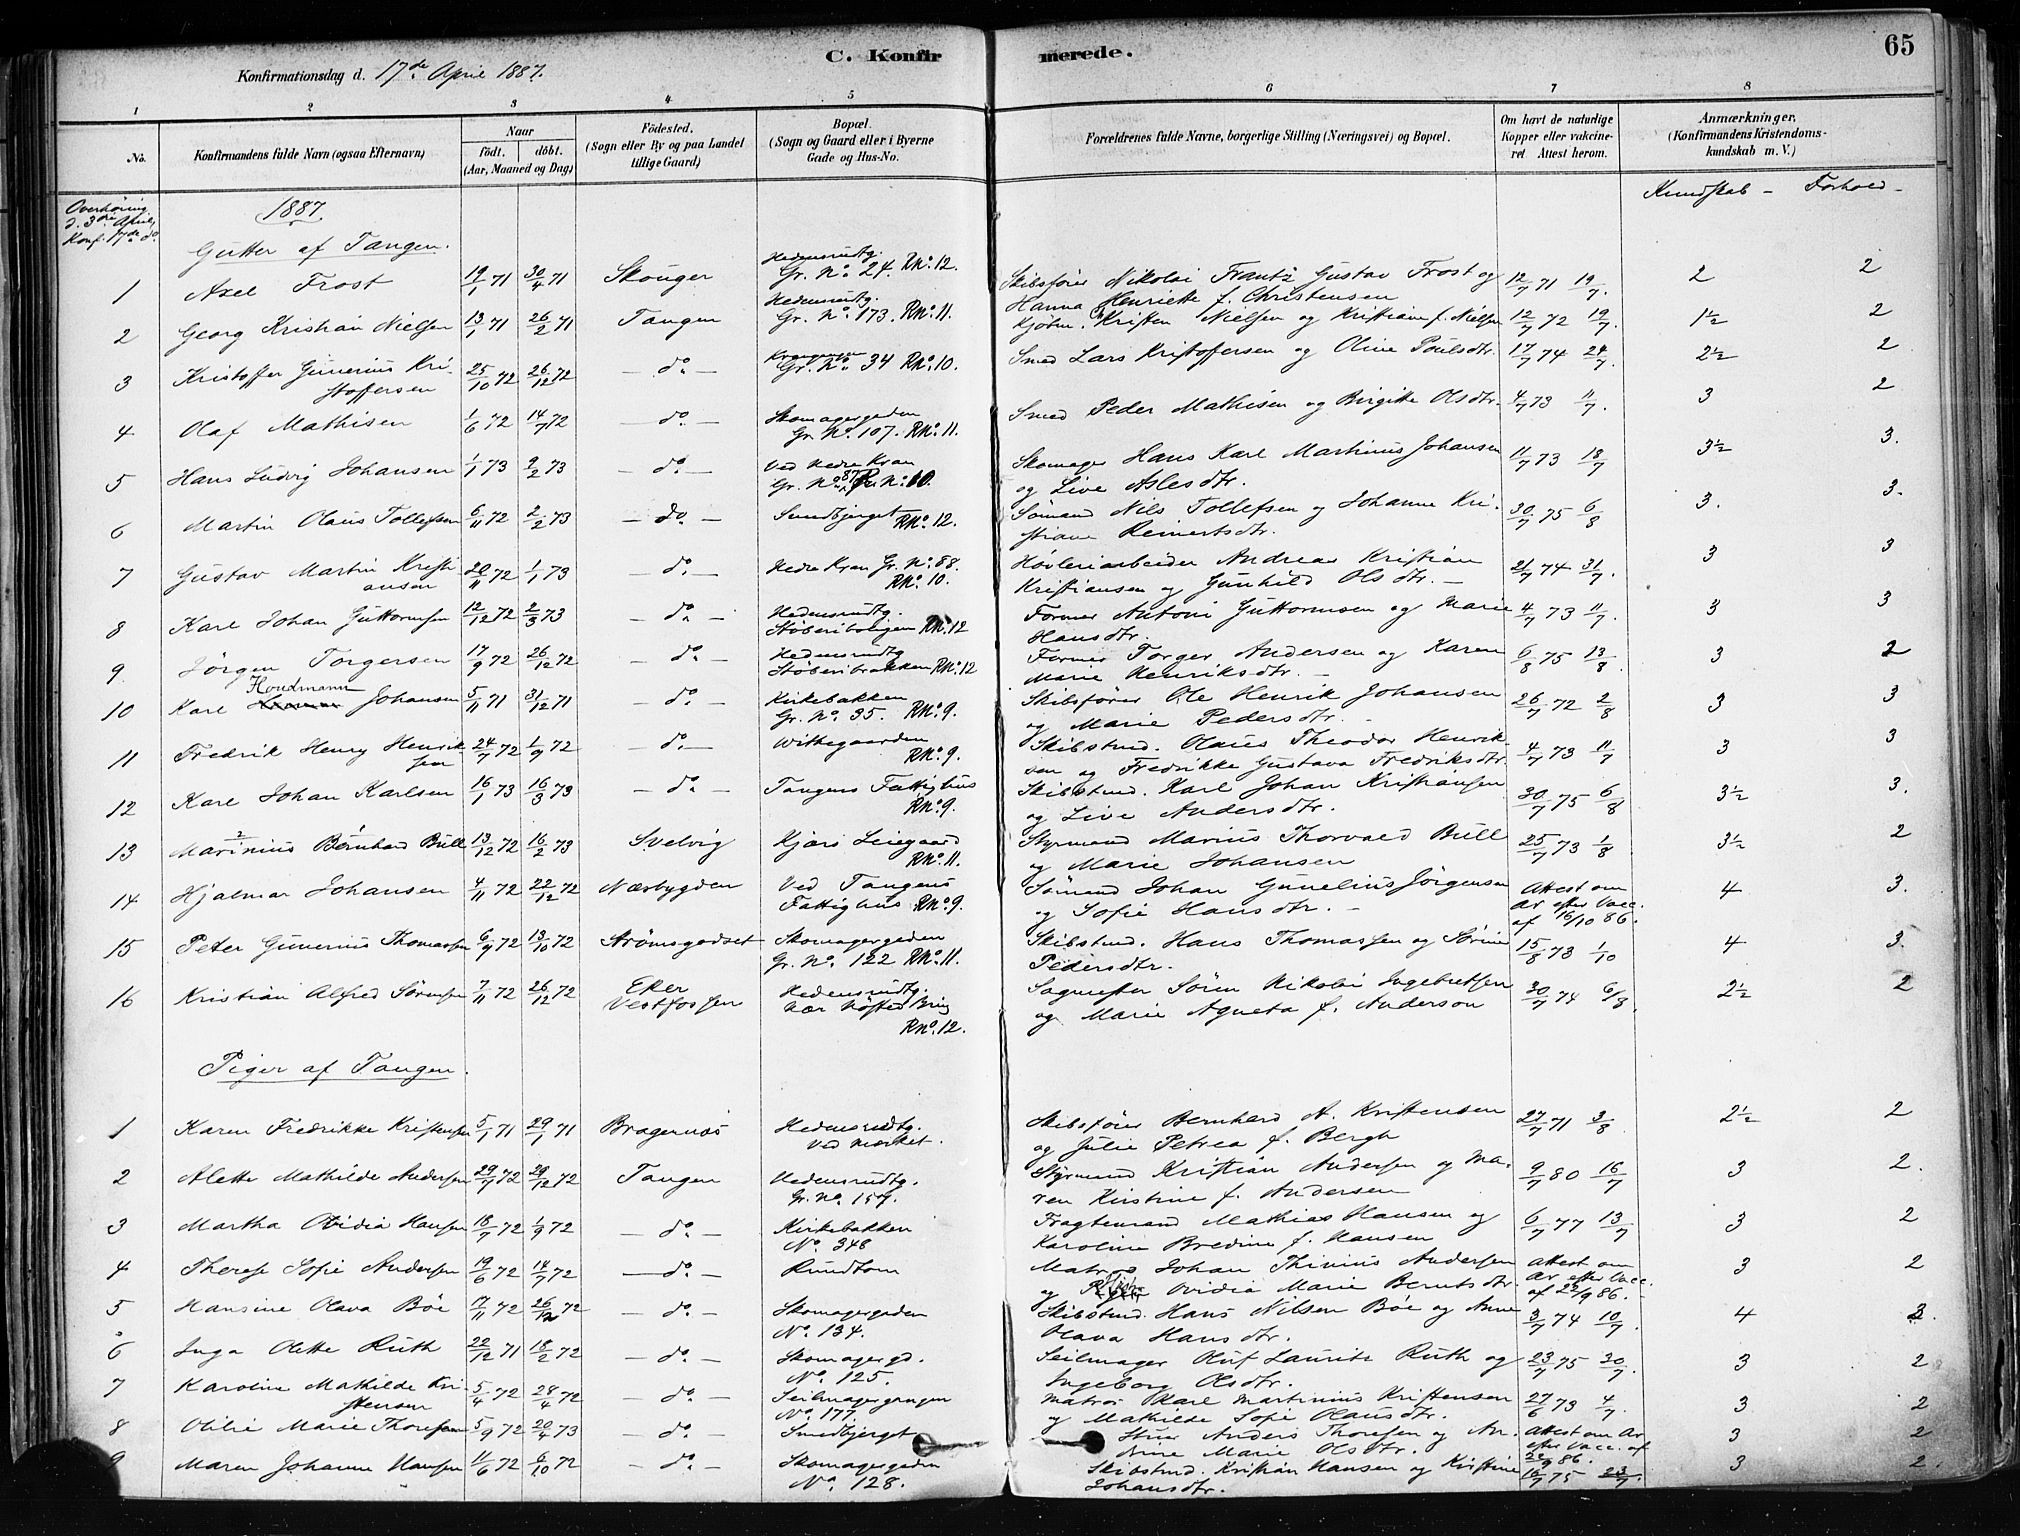 C. Konfirmerede.
65
Konfirmationsdag d. 17de April 1887.
1 2 3 4 5 6 7 8
No.
Konfirmandens fulde Navn (ogsaa Efternavn)
Naar
födt. döbt.
(Aar, Maaned og Dag)
Födested.
(Sogn eller By og paa Landet
tillige Gaard)
Bopæl.
(Sogn og Gaard eller i Byerne
Gade og Hus-No.
Forældrenes fulde Navne, borgerlige Stilling (Næringsvei) og Bopæl.
Om havt de naturlige
Kopper eller vakcine-
ret. Attest herom.
Anmærkninger.
(Konfirmandens Kristendoms-
kundskab m. V.)
Kundskab - Forhold -
Overhøring
d. 3die April,
Konf. 17de do.
1887.
Gutter af Tangen.
1 Axel Frost 19/1 71 30/4 71 Skouger Hedensrudtg. Gr. No. 24. RNo. 12. Skibsfører Nikolai Frantz Gustav Frost og 12/7 71 19/7. 2 2
Hanna Henriette f. Christensen
2 Georg Kristian Nielsen 13/1 71 26/2 71 Tangen Hedensrudtg. Gr. No. 173. RNo. 11. Kjøbm. Kristen Nielsen og Kristiane f. Nielsen 12/7 72 19/7. 1½ 2
3 Kristoffer Gunerius Kri- 25/10 72 26/12 72 - do. - Gr. No. 34 RNo. 10. Smed Lars Kristoffersen og Oline Poulsdtr. 17/7 74 24/7. 2½ 2
stoffersen
4 Olaf Mathisen 1/6 72 14/7 72 - do. - Skomagergaden Smed Peder Mathisen og Birgitte Olsdtr. 4/7 73 11/7. 3 2
Gr. No. 107. RNo. 11.
5 Hans Ludvig Johansen 1/1 73 9/2 73 - do. - Ved Nedre Kran Skomager Hans Karl Martinus Johansen 11/7 73 18/7 3½ 3.
Gr. No. 87 RNo. 10. og Live Aslesdtr.
6 Martin Olaus Tollefsen 6/11 72 2/2 73 - do. - Smedbjerget RNo. 12. Sømand Nils Tollefsen og Johanne Kri- 30/7 75 6/8 3. 3.
stiane Reinertsdtr.
7 Gustav Martin Kristi- 20/11 72 1/1 73 - do. - Nedre Kran Gr. No. 88. Høvleriarbeider Andreas Kristian 21/7 74 31/7. 3 3
ansen RNo. 10. Kristiansen og Gunhild Olsdtr. -
8 Karl Johan Guttormsen 12/12 72 2/3 73 - do. - Hedensrudtg. Former Antoni Guttormsen og Marie 4/7 73 11/7. 3 3
Støberiboligen RNo. 12 Hansdtr.
9 Jörgen Torgersen 17/9 72 26/12 72 - do. - Hedensrudtg Former Torger Andersen og Karen 6/8 75 13/8. 3 2
Støberibrakken RNo. 12 Marie Henriksdtr. -
Houdmann
10 Karl Johansen 5/11 71 31/12 71 - do. - Kirkebakken Skibsfører Ole Henrik Johansen 26/7 72 2/8 3 3
Gr. No. 35. RNo. 9. og Marie Pedersdtr. -
11 Fredrik Henry Henrik- 24/7 72 1/9 72 - do. - Wittegaarden Skibstmd. Olaus Theodor Henrik- 4/7 73 11/7 3 3
sen RNo. 9. sen og Fredrikke Gustava Fredriksdtr.
12 Karl Johan Karlsen 16/1 73 16/3 73 - do. - Tangens Fattighus Skibstmd. Karl Johan Kristiansen 30/7 75 6/8 3½ 3.
RNo. 9. og Live Andersdtr.
13 Marinius Bernhard Bull 13/12 72 16/2 73 Svelvig Kjærs Leiegaard Styrmand Marius Thorvald Bull 25/7 73 1/8 3½ 2
RNo. 11. og Marie Johansen
14 Hjalmar Johansen 4/11 72 22/12 72 Næsbygden Ved Tangens Sømand Johan Gunelius Jörgensen Attest om 4 3.
Fattighus RNo. 9. og Sofie Hansdtr. - Ar efter Vacc.
af 16/10 86.
15 Peter Gunerius Thomassen 6/9 72 13/10 72 Strömsgodset Skomagergaden Skibstmd. Hans Thomassen og Sörine 15/8 73 1/10 4 3.
Gr. No. 122 RNo. 11. Pedersdtr.
16 Kristian Alfred Sörensen 7/11 72 26/12 72 Eker Hedensrudtg. Sagmester Sören Nikolai Ingebretsen 30/7 74 6/8. 2½ 2
Vestfossen RNo. 12. og Marie Agneta f. Anderson
Piger af Tangen.
1 Karen Fredrikke Kristensen 5/1 71 29/1 71 Bragernæs Hedensrudtg. Skibsfører Bernhard A. Kristensen 27/7 71 3/8 2½ 2
ved Mærket. og Julie Petrea f. Bergh
2 Alette Mathilde Andersen 29/9 72 29/12 72 Tangen Hedensrudtg. Styrmand Kristian Andersen og Ma- 9/7 80 16/7 3 2.
Gr. No. 159. ren Kirstine f. Andersen
3 Martha Ovidia Hansen 18/7 72 1/9 72 - do. - Kirkebakken Fragtemand Mathias Hansen og 6/7 77 13/7 3 2
No. 348 Karoline Bredine f. Hansen
4 Therese Sofie Andersen 19/6 72 14/7 72 - do. - Rundtom Matros Johan Thinius Andersen Attest om 3 2
og Ovidia Marie Berntsdtr. Ar efter Vacc.
af 22/9 86. -
5 Hansine Olava Böe 17/11 72 26/12 72 - do. - Skomagergaden Skibstmd. Hans Nilsen Böe og Anne 3/7 74 10/7. 4 3.
No. 134. Olava Hansdtr.
6 Inga Olette Ruth 22/12 71 18/2 72 - do. - Skomagergd. Seilmager Oluf Lauritz Ruth og 23/7 75 30/7. 3 2
No. 125. Ingeborg Olsdtr.
7 Karoline Mathilde Kri- 5/4 72 28/4 72 - do. - Seilmagergangen Matros Karl Martinius Kristensen 27/6 73 4/7. 3 2
stensen No. 177. og Mathilde Sofie Olausdtr.
8 Otilie Marie Thoresen 5/9 72 20/4 73 - do. - Smedbjerget Anders Thoresen og An- Attest om Ar 3 2
drine Marie Olsdtr. efter Vacc. af
22/9 86.
9 Maren Johanne Hansen 11/6 72 6/10 72 - do. - Skomagergaden Skibstmd. Kristian Hansen og Kirstine 16/7 75 23/7. 3 2.
No. 128. Johansdtr.